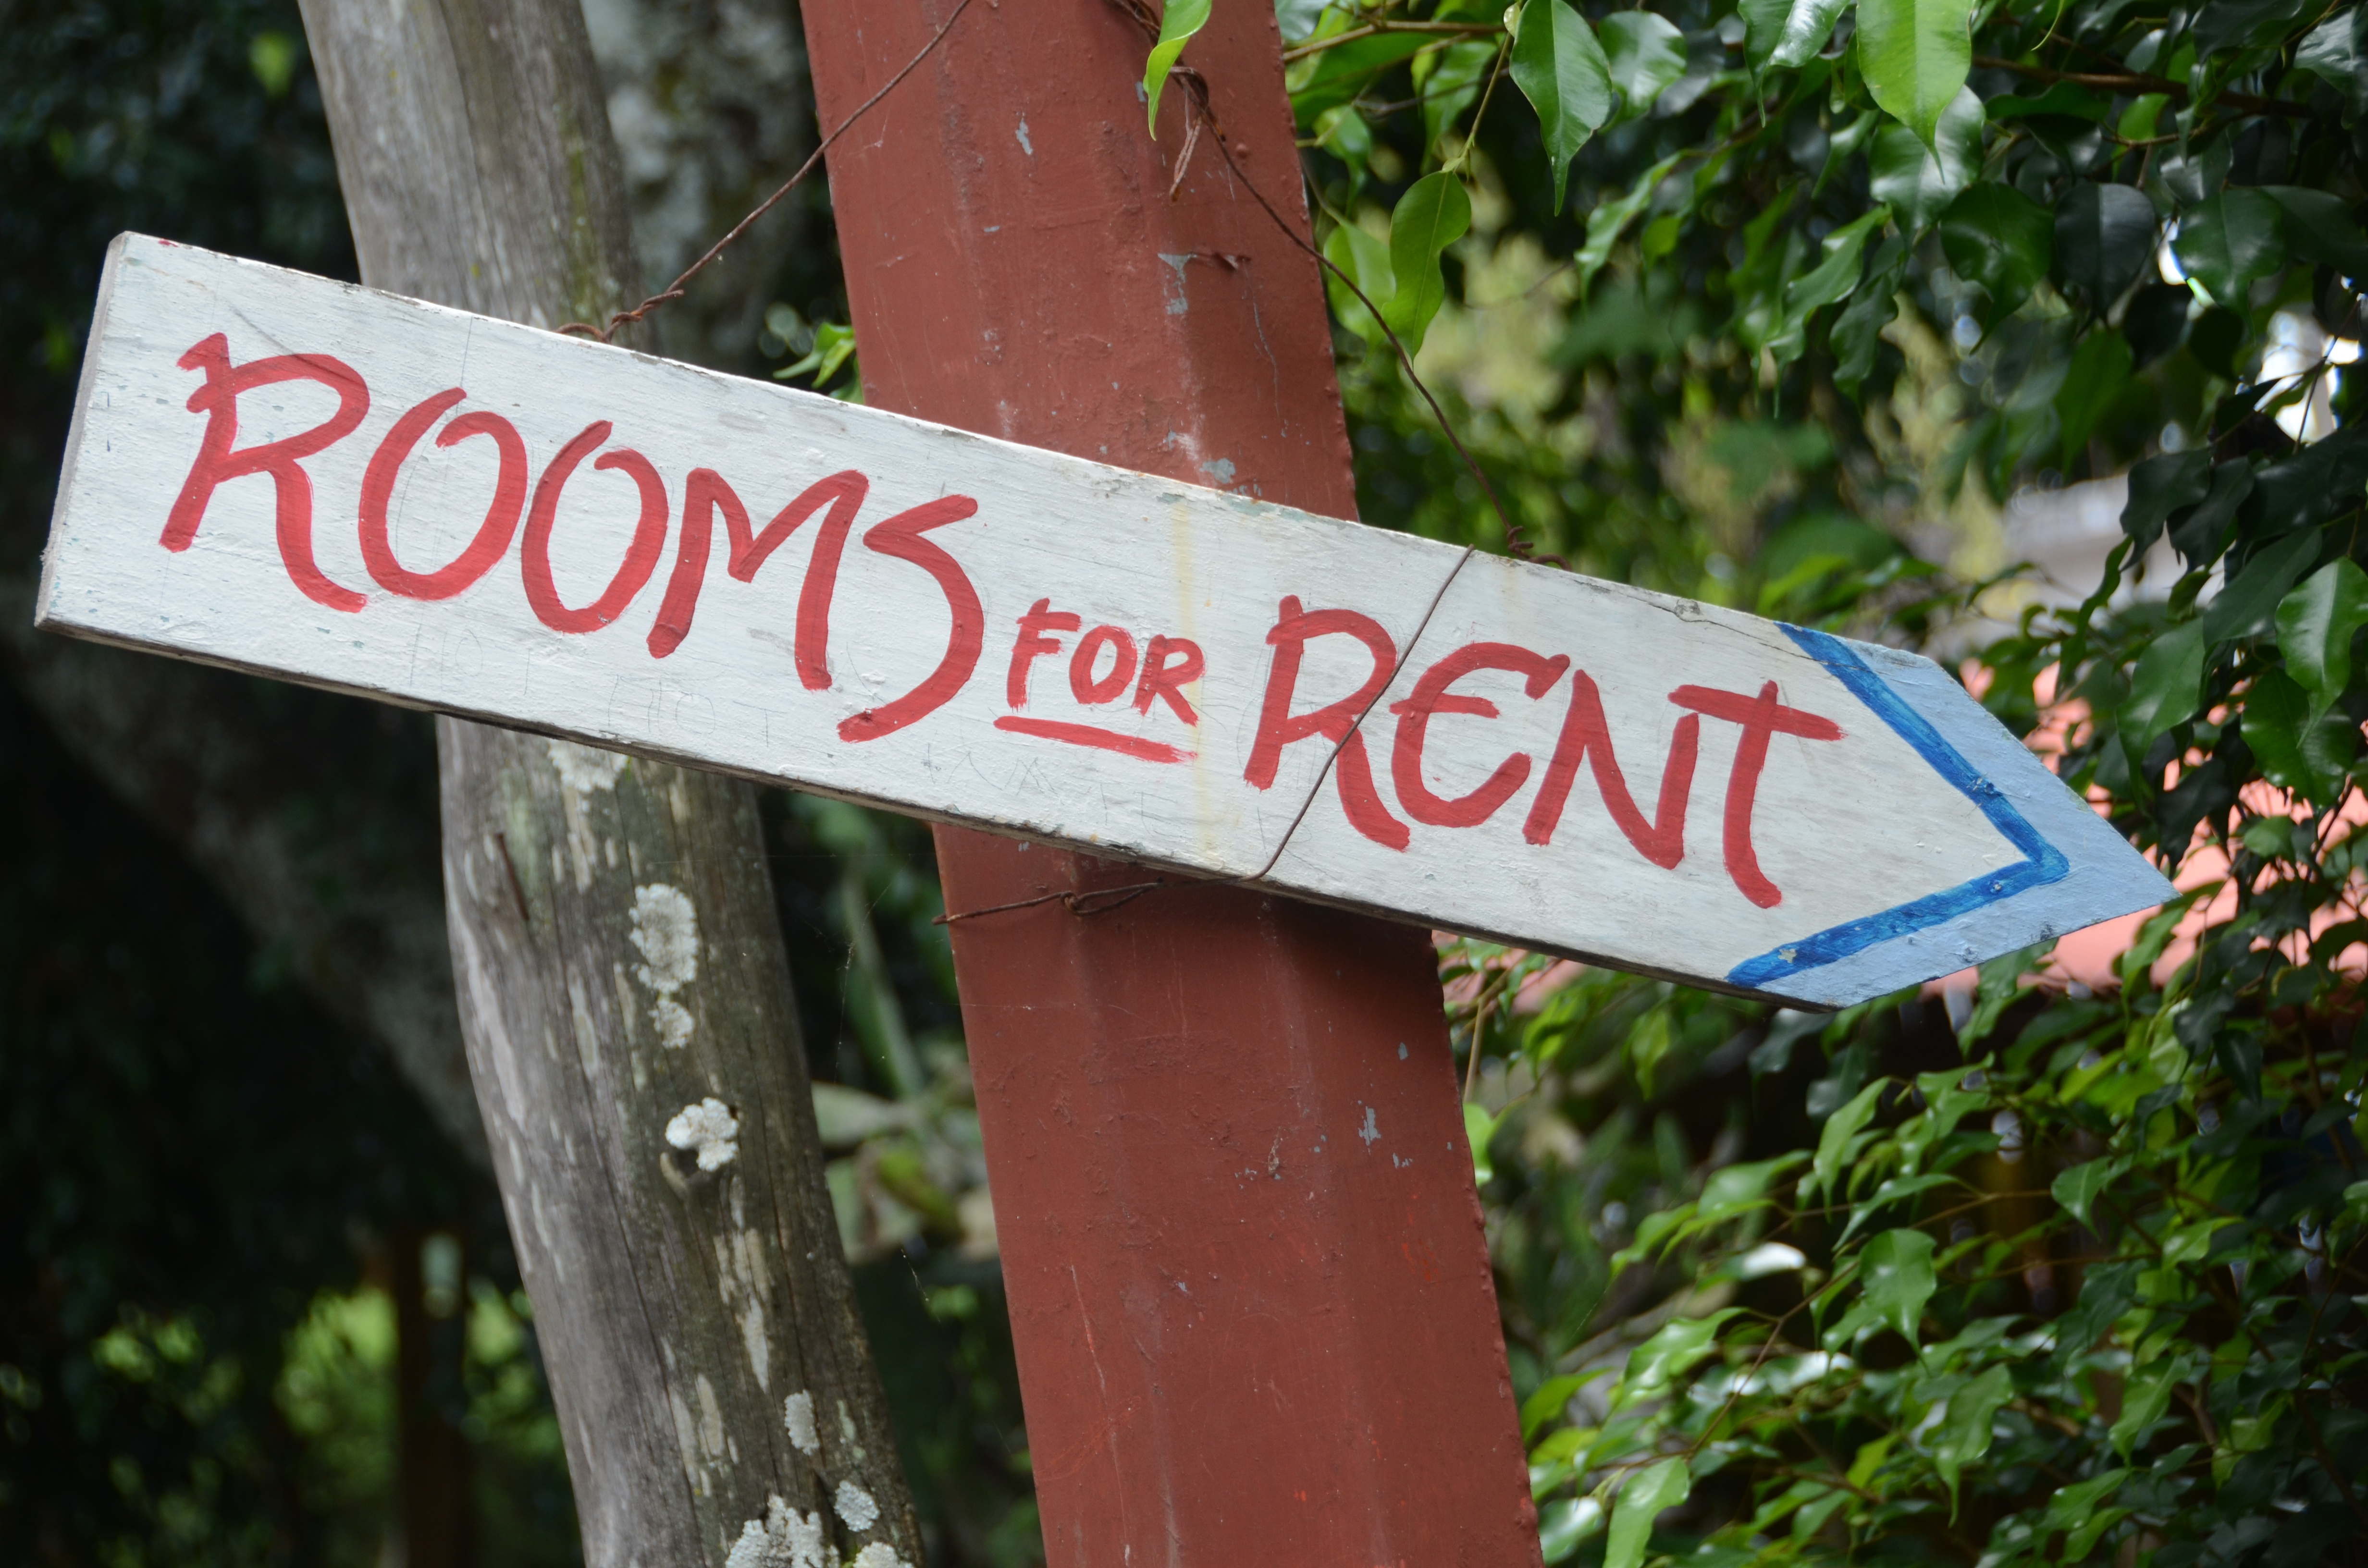 ROOMS FOR RENT